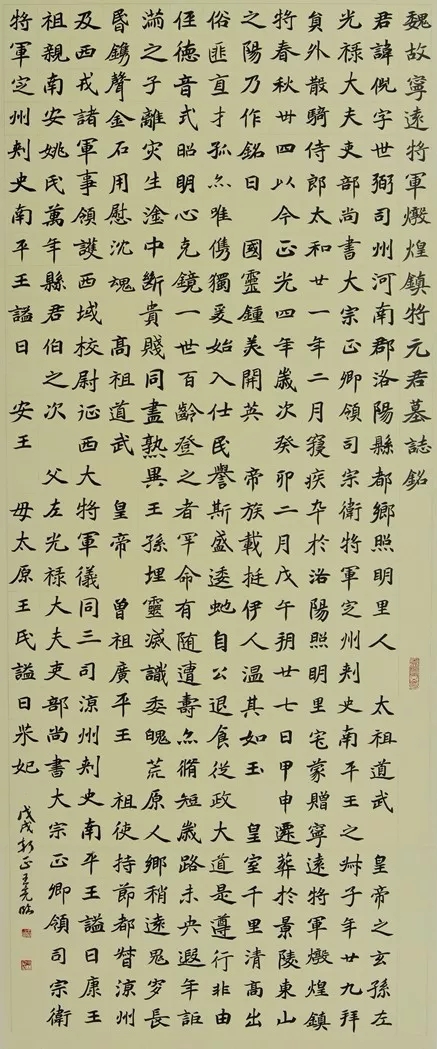 魏故寧遠將軍燉煌鎮將元君墓誌銘
君諱倪字世弼司州河南郡洛陽縣都鄉照明里人 太祖道武 皇帝之玄孫左
光祿大夫吏部尚書大宗正卿領司宗衛將軍定州刾史南平王之叔子年廿九拜
員外散騎侍郎太和廿一年二月寢疾卒於洛陽照明里宅蒙贈寧遠將軍燉煌鎮
將春秋卌四以今正光四年歲次癸卯二月戊午朔廿七日甲申遷葬於景陵東山
之陽乃作銘曰 國靈鍾美開英 帝族載挺伊人溫其如玉 皇室千里清高出
俗匪直才孤亦唯儁獨爰始入仕民譽斯盛逶虵自公退食從政大道是遵行非由
徑德音式昭明心克鏡一世百齡登之者罕命有隨遭壽亦脩短歲路未央遐年詎
滿之子離灾生塗中斷貴賤同盡孰異王孫埋靈滅識委魄荒原人鄉稍遠鬼穸長
昏鐫聲金石用慰沈魂 高祖道武 皇帝 曾祖廣平王 祖使持節都督涼州
及西戎諸軍事領護西域校尉征西大將軍儀同三司涼州刾史南平王謚曰康王
祖親南安姚氏萬年縣君伯之次 父左光祿大夫吏部尚書大宗正卿領司宗衛
將軍定州刾史南平王謚曰 安王 母太原王氏謚曰恭妃
戊戌新正王光